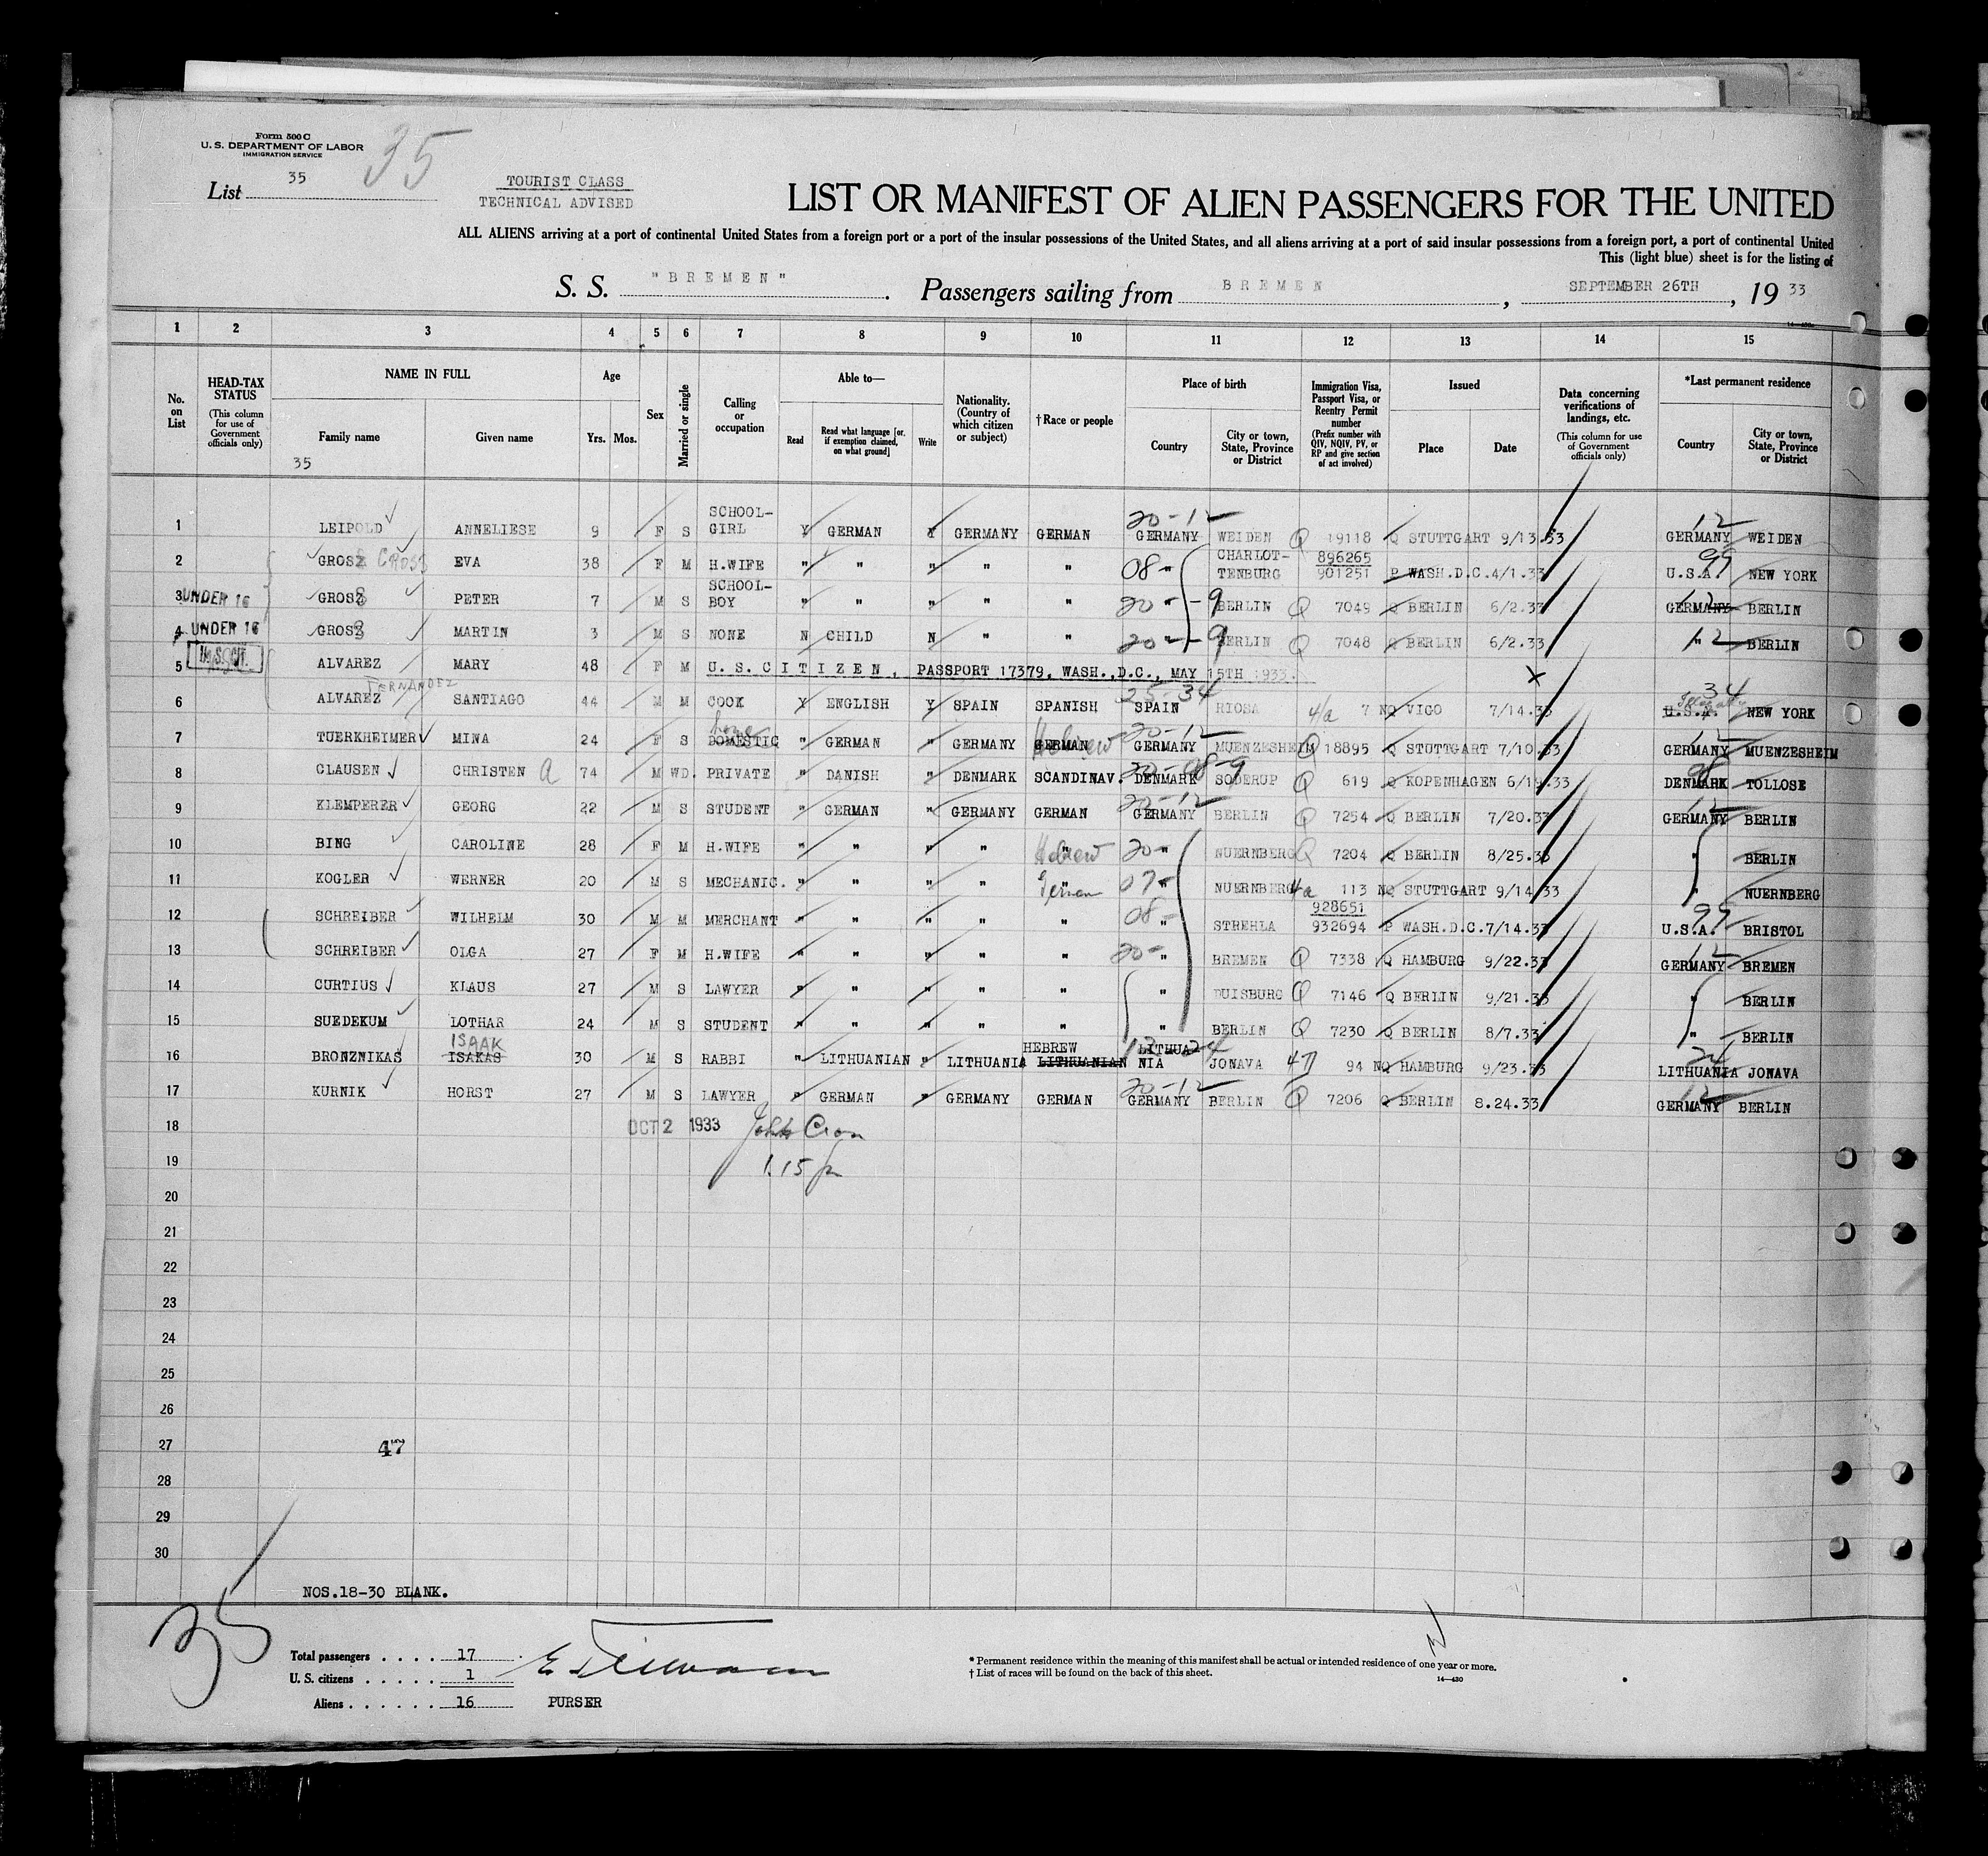 Form 500 C
U. S. DEPARTMENT OF LABOR
IMMIGRATION SERVICE
35
List 35
TOURIST CLASS
TECHNICAL ADVISED
LIST OR MANIFEST OF ALIEN PASSENGERS FOR THE UNITED
ALL ALIENS arriving at a port of continental United States from a foreign port or a port of the insular possessions of the United States, and all aliens arriving at a port of said insular possessions from a foreign port, a port of continental United
This (light blue) sheet is for the listing of
S. S. "BREMEN". Passengers sailing from BREMEN, SEPTEMBER 26TH, 1933
1 2 3 4 5 6 7 8 9 10 11 12 13 14 15
No. on List
HEAD-TAX STATUS (This column for use of Government officials only)
NAME IN FULL
Family name
Given name
35
Age
Yrs. Mos.
Sex
Married or single
Calling or occupation
Able to—
Read
Read what language [or, if exemption claimed, on what ground]
Write
Nationality. (Country of which citizen or subject)
† Race or people
Place of birth
Country
City or town, State, Province or District
Immigration Visa, Passport Visa, or Reentry Permit number (Prefix number with QIV, NQIV, PV, or RP and give section of act involved)
Issued
Place
Date
Data concerning verifications of landings, etc. (This column for use of Government officials only)
*Last permanent residence
Country
City or town, State, Province or District
1 LEIPOLD ANNELIESE 9 F S SCHOOL-GIRL Y GERMAN Y GERMANY GERMAN 20-12 GERMANY WEIDEN Q 19118 Q STUTTGART 9/13.33 12 GERMANY WEIDEN
2 GROSZ GROSS EVA 38 F M H.WIFE " " " " " 08 " CHARLOT-TENBURG 896265 901251 P WASH.D.C. 4/1.33 99 U.S.A. NEW YORK
3 UNDER 16 GROSZ PETER 7 M S SCHOOL-BOY " " " " " 20 " 9 BERLIN Q 7049 Q BERLIN 6/2.33 12 GERMANY BERLIN
4 UNDER 16 GROSZ MARTIN 3 M S NONE N CHILD N " " 20 " 9 BERLIN Q 7048 Q BERLIN 6/2.33 12 " BERLIN
5 U.S. CIT. ALVAREZ MARY 48 F M U.S.CITIZEN, PASSPORT 17379, WASH.,D.C., MAY 15TH 1933. X
6 ALVAREZ FERNANDEZ SANTIAGO 44 M M COOK Y ENGLISH Y SPAIN SPANISH 25-34 SPAIN RIOSA 4/a 7 NQ VIGO 7/14.33 34 U.S.A. NEW YORK
7 TUERKHEIMER MINA 24 F S DOMESTIC " GERMAN " GERMANY GERMAN Hebrew 20-12 GERMANY MUENZESHEIM Q 18895 Q STUTTGART 7/10.33 12 GERMANY MUENZESHEIM
8 CLAUSEN CHRISTEN a 74 M WD. PRIVATE " DANISH " DENMARK SCANDINAV. DENMARK SODERUP Q 619 Q KOPENHAGEN 6/19.33 DENMARK TOLLOSE
9 KLEMPERER GEORG 22 M S STUDENT " GERMAN " GERMANY GERMAN 20-12 GERMANY BERLIN Q 7254 Q BERLIN 7/20.33 12 GERMANY BERLIN
10 BING CAROLINE 28 F M H.WIFE " " " " " Hebrew 20 " NUERNBERG Q 7204 Q BERLIN 8/25.33 " BERLIN
11 KOGLER WERNER 20 M S MECHANIC. " " " " " German 07 " NUERNBERG 4a 113 NQ STUTTGART 9/14/33 " NUERNBERG
12 SCHREIBER WILHELM 30 M M MERCHANT " " " " " 08 " STREHLA 928651 932694 P WASH.D.C. 7/14.33 99 U.S.A. BRISTOL
13 SCHREIBER OLGA 27 F M H.WIFE " " " " " 20 " BREMEN Q 7338 Q HAMBURG 9/22.33 12 GERMANY BREMEN
14 CURTIUS KLAUS 27 M S LAWYER " " " " " " DUISBURG Q 7146 Q BERLIN 9/21.33 " BERLIN
15 SUEDEKUM LOTHAR 24 M S STUDENT " " " " " " BERLIN Q 7230 Q BERLIN 8/7.33 " BERLIN
16 BRONZNIKAS ISAKAS ISAAK 30 M S RABBI " LITHUANIAN " LITHUANIA HEBREW LITHUANIAN LITHUANIA JONAVA 94 NQ HAMBURG 9/23.33 24 LITHUANIA JONAVA
17 KURNIK HORST 27 M S LAWYER " GERMAN " GERMANY GERMAN 20-12 GERMANY BERLIN Q 7206 Q BERLIN 8.24.33 12 GERMANY BERLIN
18 OCT 2 1933 John
19 1.15 p
20
21
22
23
24
25
26
27 47
28
29
30
NOS.18-30 BLANK.
35
Total passengers . . . . 17
U. S. citizens . . . . . 1
Aliens . . . . . . 16
PURSER
* Permanent residence within the meaning of this manifest shall be actual or intended residence of one year or more.
† List of races will be found on the back of this sheet.
14—430